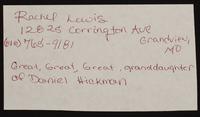 Rachel Lewis
12828 Corrington Ave
(816) 765-9181 Grandview, MO
Great, Great, Great, granddaughter
of Daniel Hickman